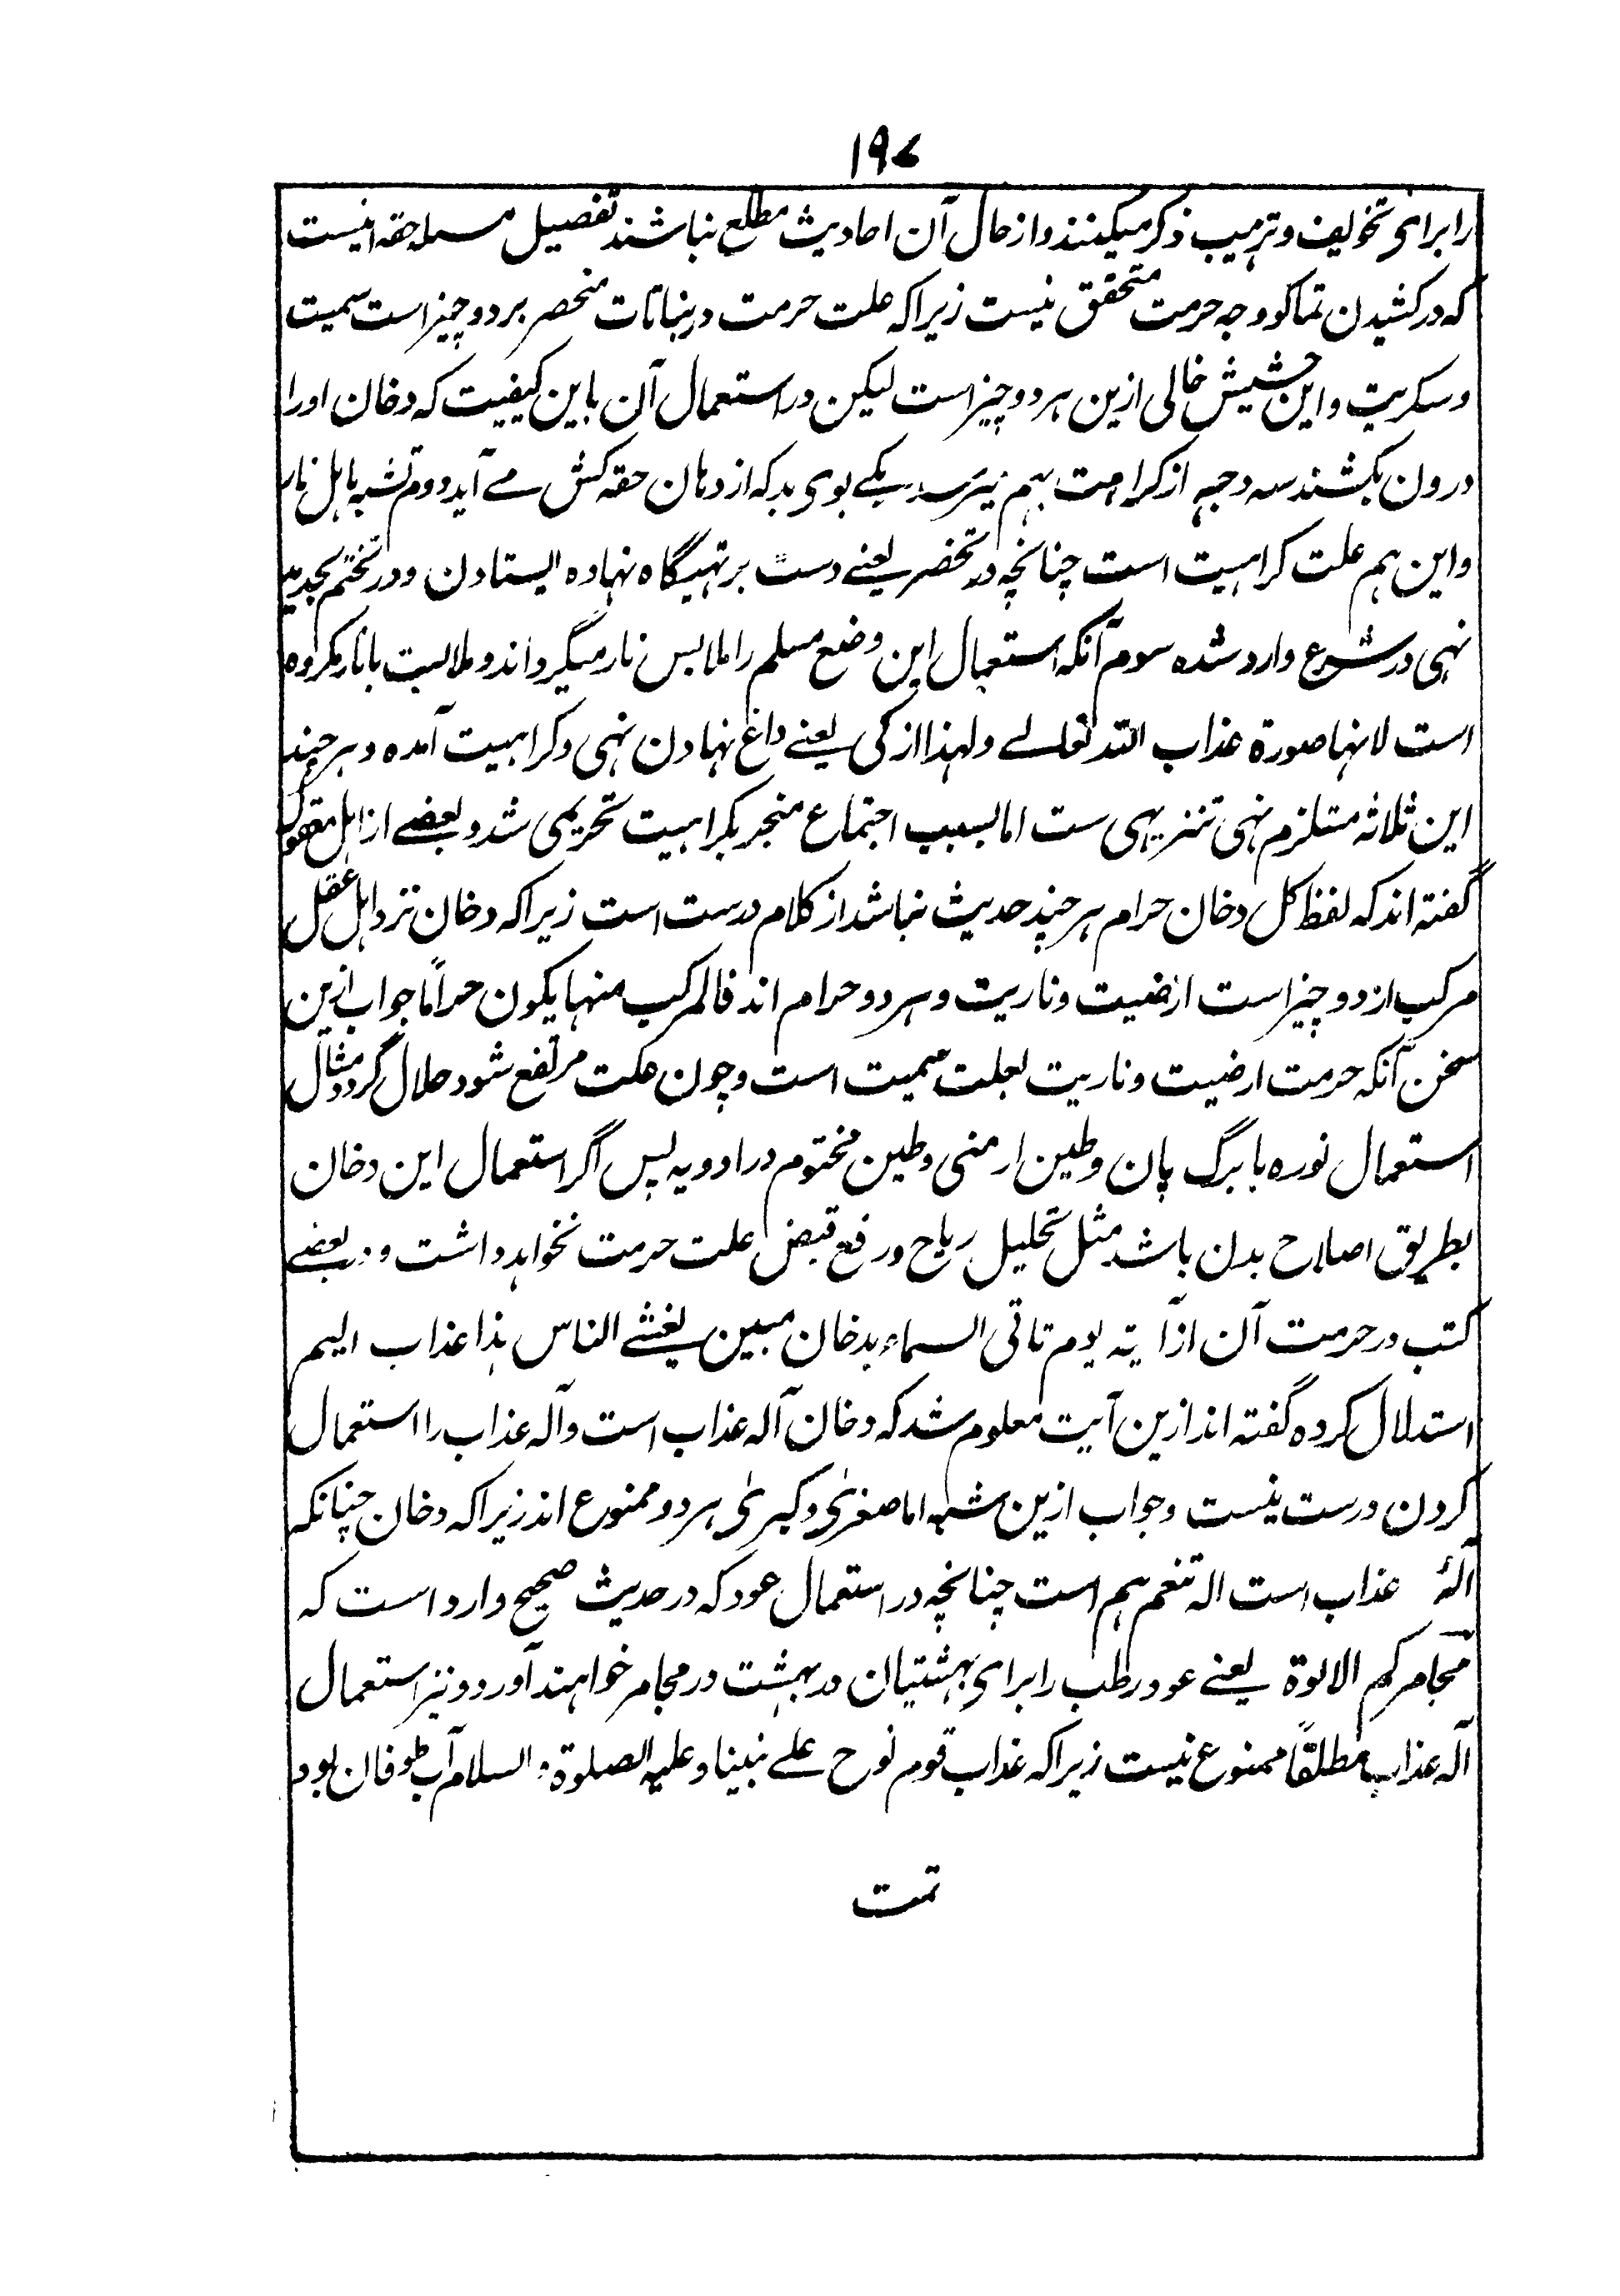 ۱۹۷
را برای تخویف و ترہیب ذکر میکنند و از حال آن احادیث مطلع نباشند تفصیل مسئلہ حقہ انیست
کہ در کشیدن تماکو وجہ حرمت متحقق نیست زیرا کہ علت حرمت در نباتات منحصر بر دو چیز است سمیت
و سکریت و این حشیش خالی ازین ہر دو چیز است لیکن در استعمال آن باین کیفیت کہ دخان اورا
درون بکشند سہ وجہ از کراہت بہم میرسد یکے بوی بد کہ از دہان حقہ کش مے آید دوم تشبہ باہل نار
و این ہم علت کراہیت است چنانچہ در تخصر یعنے دست بر تہیگاہ نہادہ ایستادن و در تختم بحدید
نہی در شرع وارد شدہ سوم آنکہ استعمال این وضع مسلم را ملابس نار میگرداند و ملابست با نار مکروہ
است لانہا صورۃ عذاب اللہ تعالے ولہذا از کی یعنے داغ نہادن نہی و کراہیت آمدہ و ہر چند
این ثلاثہ مستلزم نہی تنزیہی ست اما بسبب اجتماع منجر بکراہیت تحریمی شد و بعضے از اہل معقول
گفتہ اند کہ لفظ کل دخان حرام ہر چند حدیث نباشد از کلام درست است زیرا کہ دخان نزد اہل عقل
مرکب از دو چیز است ارضیت و ناریت و ہر دو حرام اند فالمرکب منہا یکون حراماً جواب ازین
سخن آنکہ حرمت ارضیت و ناریت لعلت سمیت است و چون علت مرتفع شود حلال گردد مثال
استعمال نورہ با برگ پان و طین ارمنی و طین مختوم در ادویہ پس اگر استعمال این دخان
بطریق اصلاح بدن باشد مثل تحلیل ریاح و رفع قبض علت حرمت نخواہد داشت و در بعضے
کتب در حرمت آن از آیتہ یوم تاتی السماء بدخان مبین یغشے الناس ہذا عذاب الیم
استدلال کردہ گفتہ اند ازین آیت معلوم شد کہ دخان آلہ عذاب است و آلہ عذاب را استعمال
کردن درست نیست و جواب ازین شبہ اما صغریٰ و کبریٰ ہر دو ممنوع اند زیرا کہ دخان چنانکہ
آلۂ عذاب است الہ تنعم ہم است چنانچہ در استعمال عود کہ در حدیث صحیح وارد است کہ
مجامرکم الالوۃ یعنے عود رطب را برای بہشتیان در بہشت در مجامر خواہند آورد و نیز استعمال
آلہ عذاب مطلقاً ممنوع نیست زیرا کہ عذاب قوم نوح علے نبینا و علیہ الصلوۃ والسلام آب طوفان بود
تمت